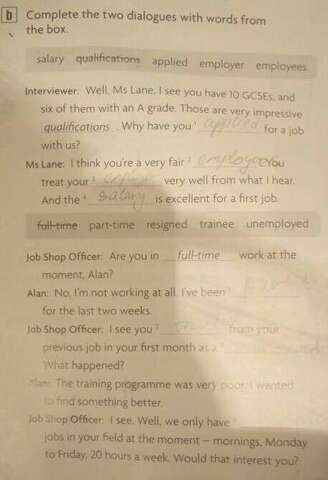 b Complete the two dialogues with words from
the box.
salary qualifications applied employer employees
Interviewer: Well, Ms Lane, I see you have 10 GCSEs, and
six of them with an A grade. Those are very impressive
qualifications . Why have you ¹ applied for a job
with us?
Ms Lane: I think you're a very fair ² employer You
treat your ³ very well from what I hear.
And the ⁴ salary is excellent for a first job.
full-time part-time resigned trainee unemployed
Job Shop Officer: Are you in full-time work at the
moment, Alan?
Alan: No, I'm not working at all. I've been
for the last two weeks.
Job Shop Officer: I see you from your
previous job in your first month as a
What happened?
Alan: The training programme was very poor. I wanted
to find something better.
Job Shop Officer: I see. Well, we only have
jobs in your field at the moment – mornings, Monday
to Friday, 20 hours a week. Would that interest you?